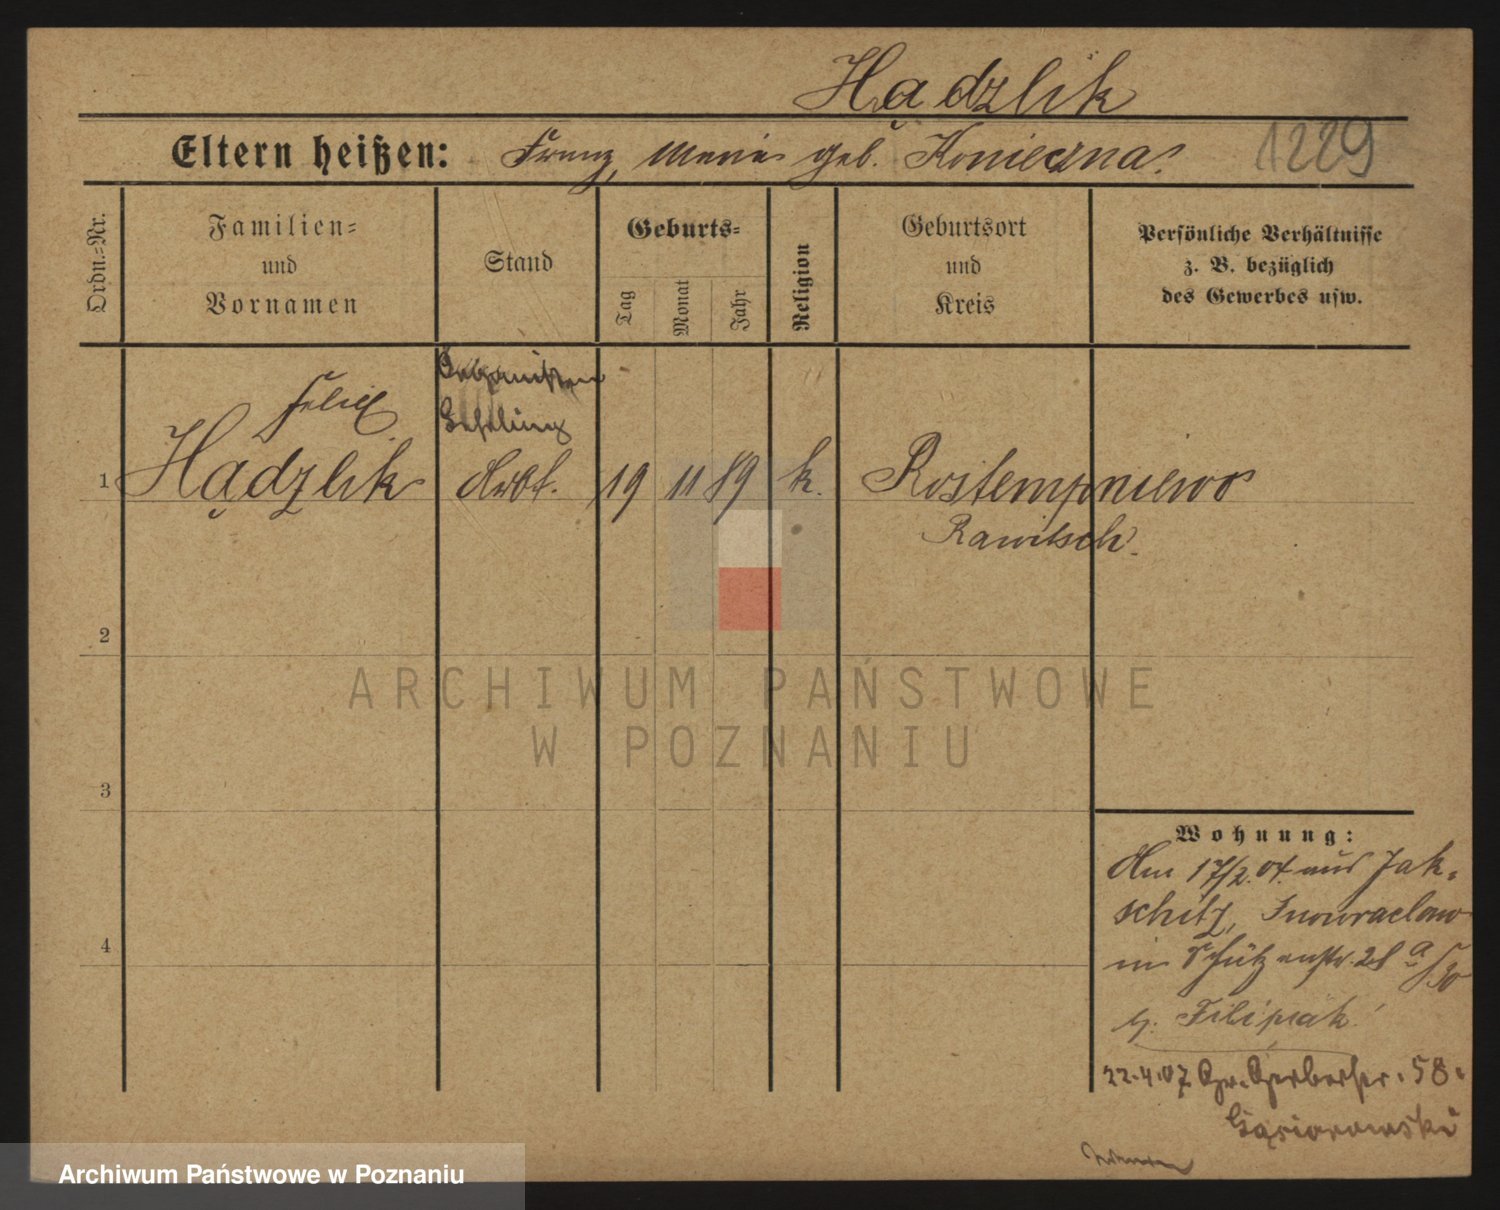 Hądzlik
Eltern heißen: Franz, Marie geb. Konieczna.
1229
Ordn.=Nr.
Familien=
und
Vornamen
Stand
Geburts=
Tag
Monat
Jahr
Religion
Geburtsort
und
Kreis
Persönliche Verhältnisse
z. B. bezüglich
des Gewerbes usw.
Organisten
Lehrling
Felix
1 Hądzlik Arbt. 19 11 89 k. Rostempniewo
Rawitsch.
2
ARCHIWUM PAŃSTWOWE
W POZNANIU
3
4
Wohnung:
Am 17/2. 07. aus Jak-
schitz, Inowraclaw
in Schützenstr. 28 a
b. Filipiak
22.4.07 Gr. Gerberstr. 58.
Gąsiorowski
Archiwum Państwowe w Poznaniu